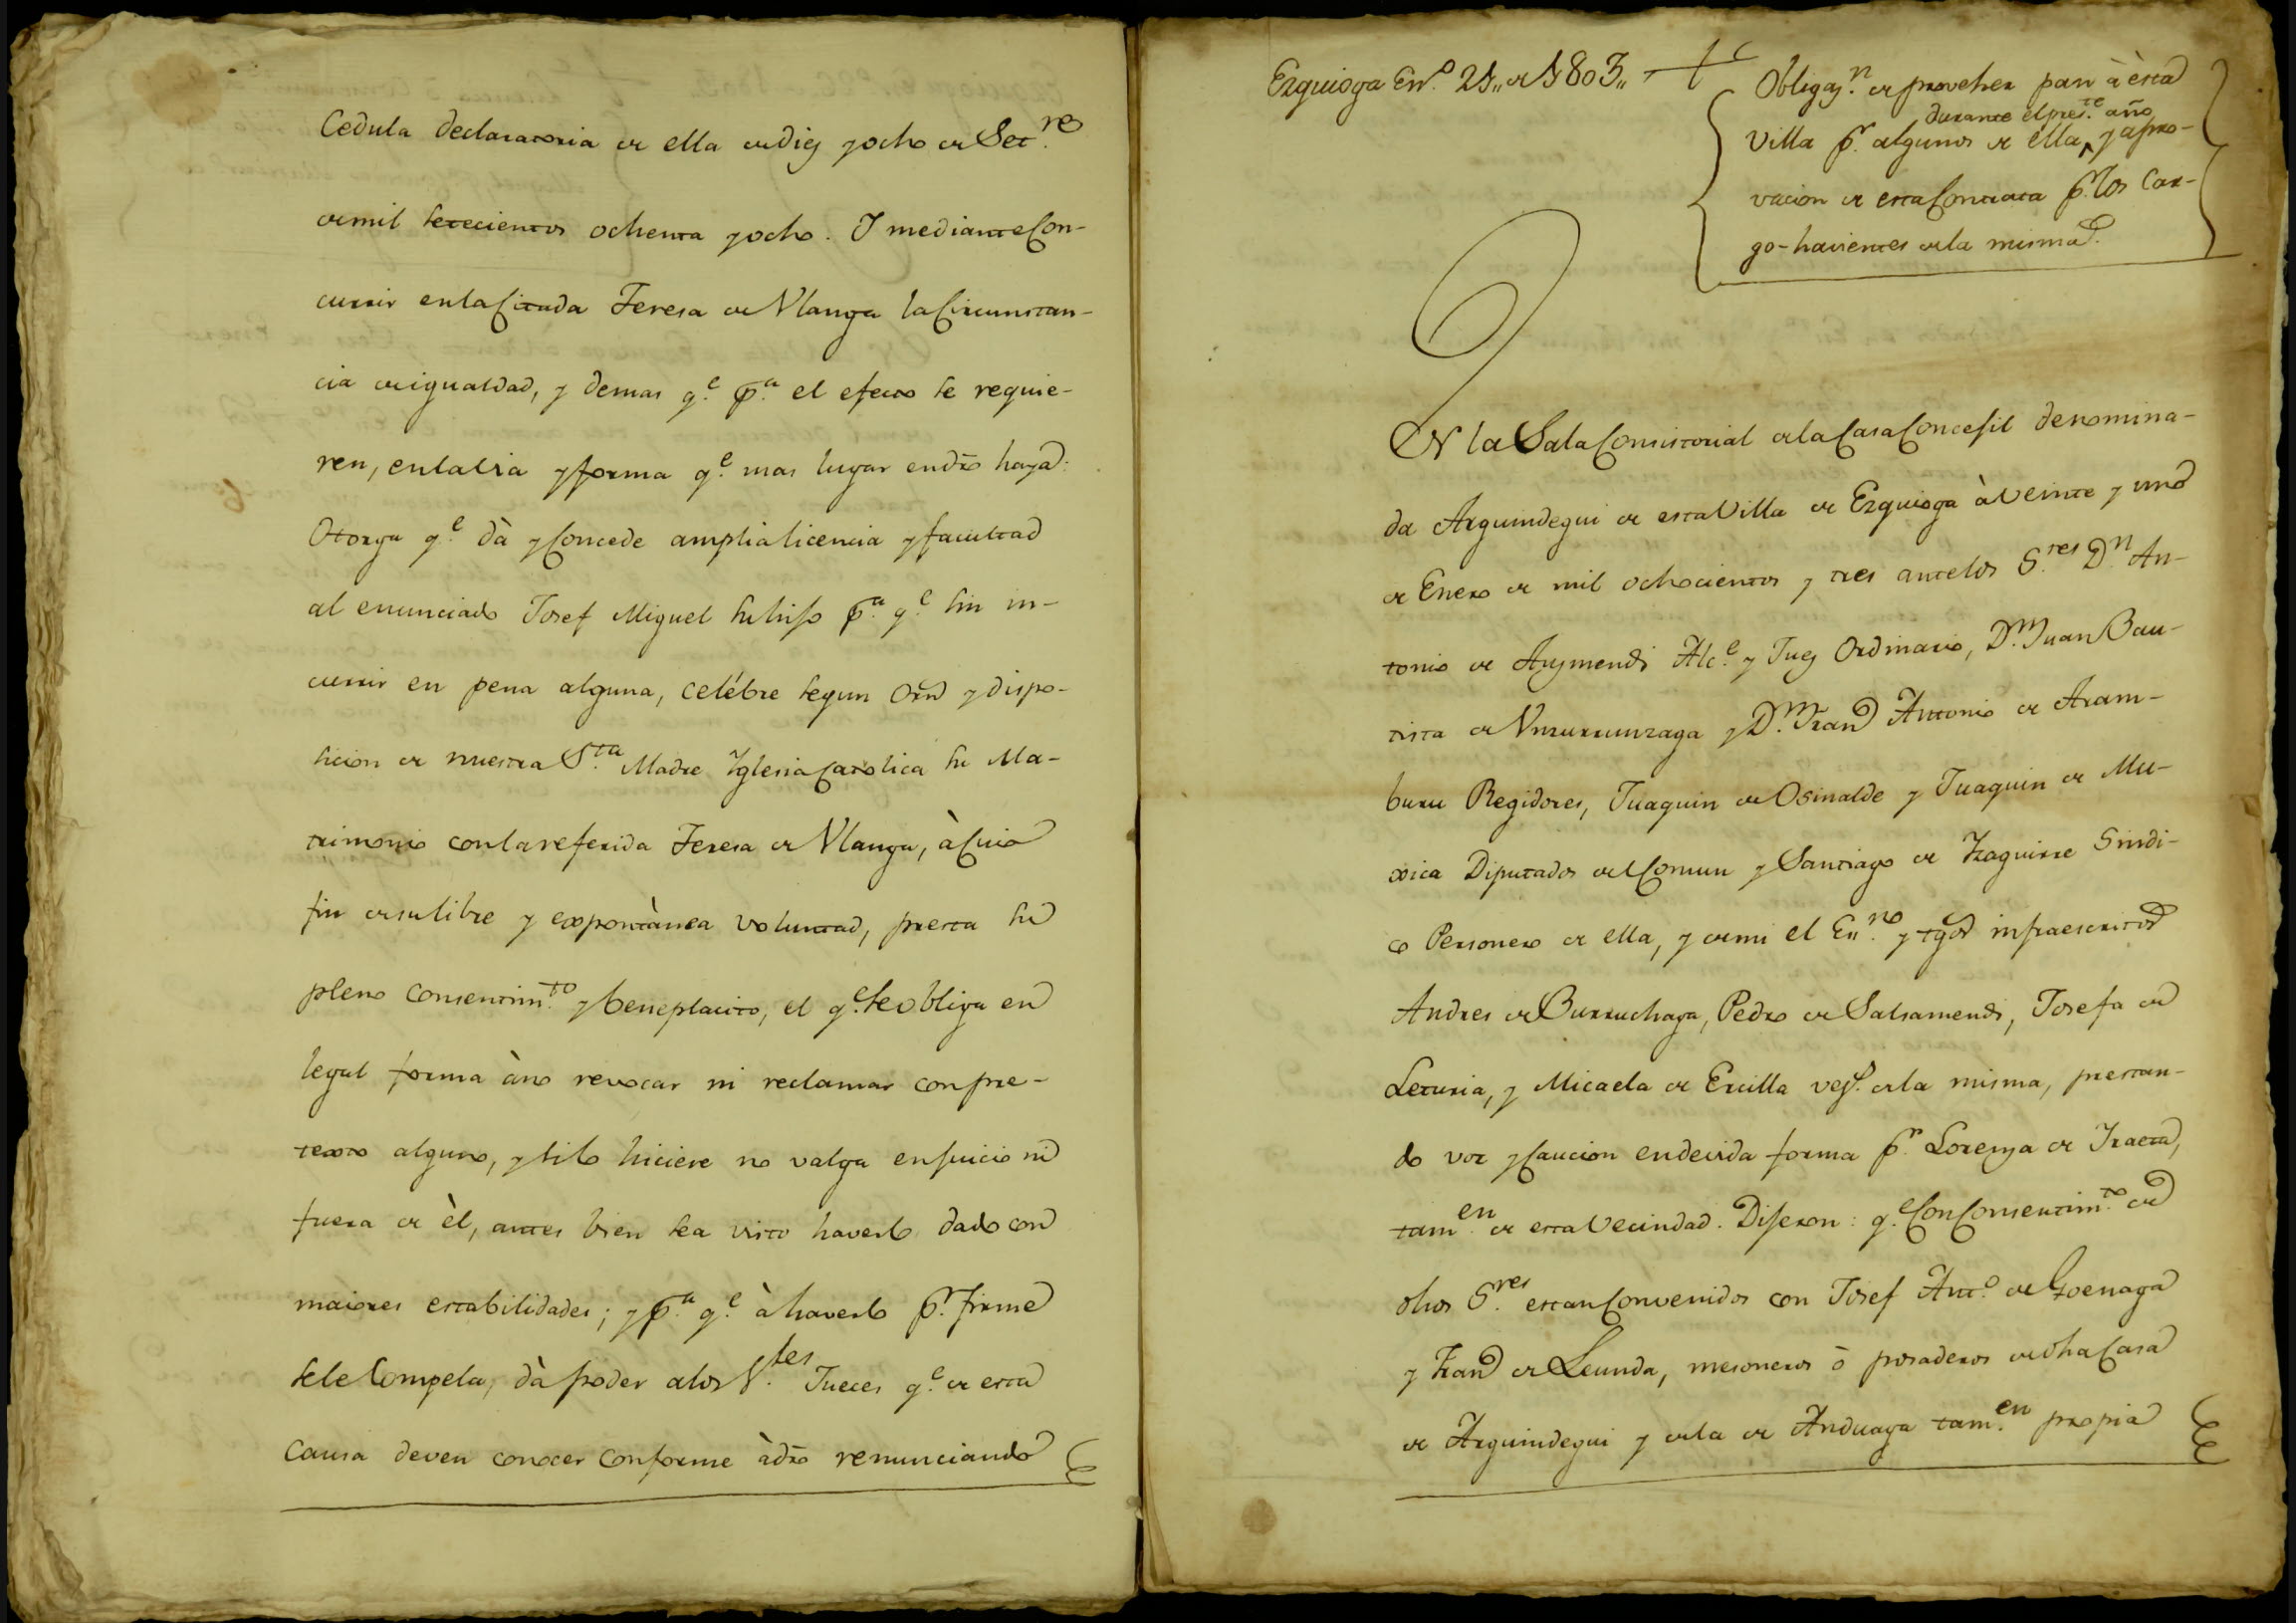 Cedula declaratoria de ella de diez y ocho de Set.re
de mil setecientos ochenta y ocho. Y mediante Con-
currir en la Citada Teresa de Vlanga la Circunstan-
cia de igualdad, y demas q.e p.a el efecto se requie-
ren, en la via y forma q.e mas lugar en dr̃o haya:
Otorga q.e dà y Concede amplia licencia y facultad
al enunciado Josef Miguel su hijo p.a q.e sin in-
currir en pena alguna, celébre segun Orn̄ y dispo-
sicion de nuestra S.ta Madre Yglesia Catolica su Ma-
trimonio con la referida Teresa de Vlanga, à Cuio
fin de su libre y expontànea voluntad, presta su
pleno consentim.to y beneplacito, el q.e se obliga en
legal forma à no revocar ni reclamar con pre-
texto alguno, y si lo hiciere no valga en juicio ni
fuera de èl, antes bien sea visto haverlo dado con
maiores estabilidades; y p.a q.e à haverlo p.r firme
se le Compela, dà poder a los S.res Jueces q.e de esta
Causa deven conocer conforme à dr̃o renunciando
Ezquioga En.o 21,, de 1803,,
Obligaz.n de proveher pan à esta
durante el pres.te año
Villa p.r algunos de ella, y apro-
vacion de esta Contrata p.r los Car-
go-havientes de la misma.
EN la Sala Consistorial de la Casa Concejil denomina-
da Arguindegui de esta Villa de Ezquioga à veinte y uno
de Enero de mil ochocientos y tres ante los S.res D.n An-
tonio de Aizmendi Alc.e y Juez Ordinario, D.n Juan Bau-
tista de Vnzurrunzaga y D.n Fran.co Antonio de Aram-
buru Regidores, Juaquin de Osinalde y Juaquin de Mu-
xica Diputados del Comun y Santiago de Yzaguirre Sindi-
co Personero de ella, y de mi el Es.no y tgos infraescritos
Andres de Burruchaga, Pedro de Salsamendi, Josefa de
Leturia, y Micaela de Ercilla vez.s de la misma, prestan-
do voz y Caucion en devida forma p.r Lorenza de Yraeta,
tam.en de esta Vecindad. Dijeron: q.e Con Consentim.to de
dhos S.res estan Convenidos con Josef Ant.o de Goenaga
y Fran.co de Leunda, mesoneros ò posaderos de dha Casa
de Arguindegui y de la de Anduaga tam.en propia